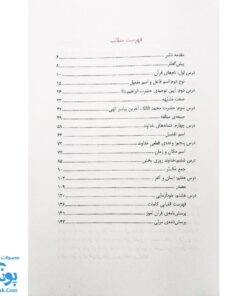 فهرست مطالب
مقدمه ناشر ۶
پیش‌گفتار ۸
درس اول: نام‌های قرآن ۱۰
نوع دوم اسم فاعل و اسم مفعول ۱۵
درس دوم: آیین توحیدی حضرت ابراهیم
صفت مشبّهه
درس سوم: حضرت محمد آخرین پیامبر الهی
صیغه‌ی مبالغه
درس چهارم: نشانه‌های خداوند ۵۱
اسم تفضیل
درس پنجم: وعده‌ی قطعی خداوند
اسم مکان و زمان
درس ششم: خداوند روزی بخش
جمع مکسّر
درس هفتم: ایمان و کفر ۱۰۲
مصدر ۱۰۹
درس هشتم: خودآزمایی
فهرست الفبایی کلمات ۱۳۶
پرسش‌نامه‌ی قرآن آموز ۱۴۱
پرسش‌نامه‌ی مربی ۱۴۳
محصولات